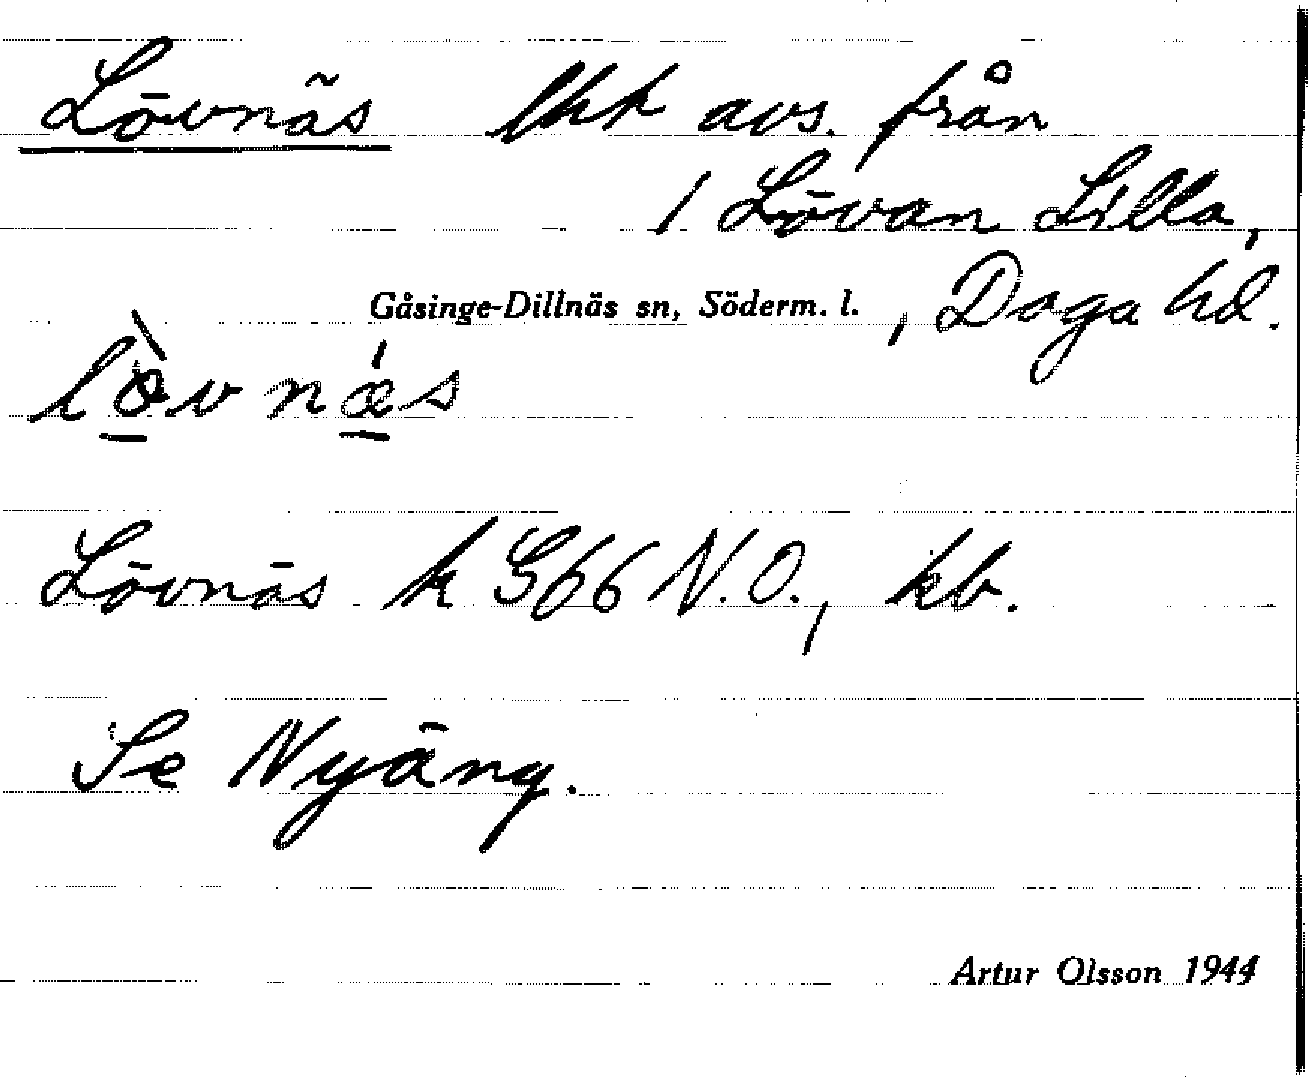 Lövnäs lhk avs. från
1 Lövan Lilla,
Gåsinge-Dillnäs sn, Söderm. l. , Daga hd.
lö̀v nǽs
Lövnäs k G66 N.O., kb.
Se Nyäng.
Artur Olsson 1944